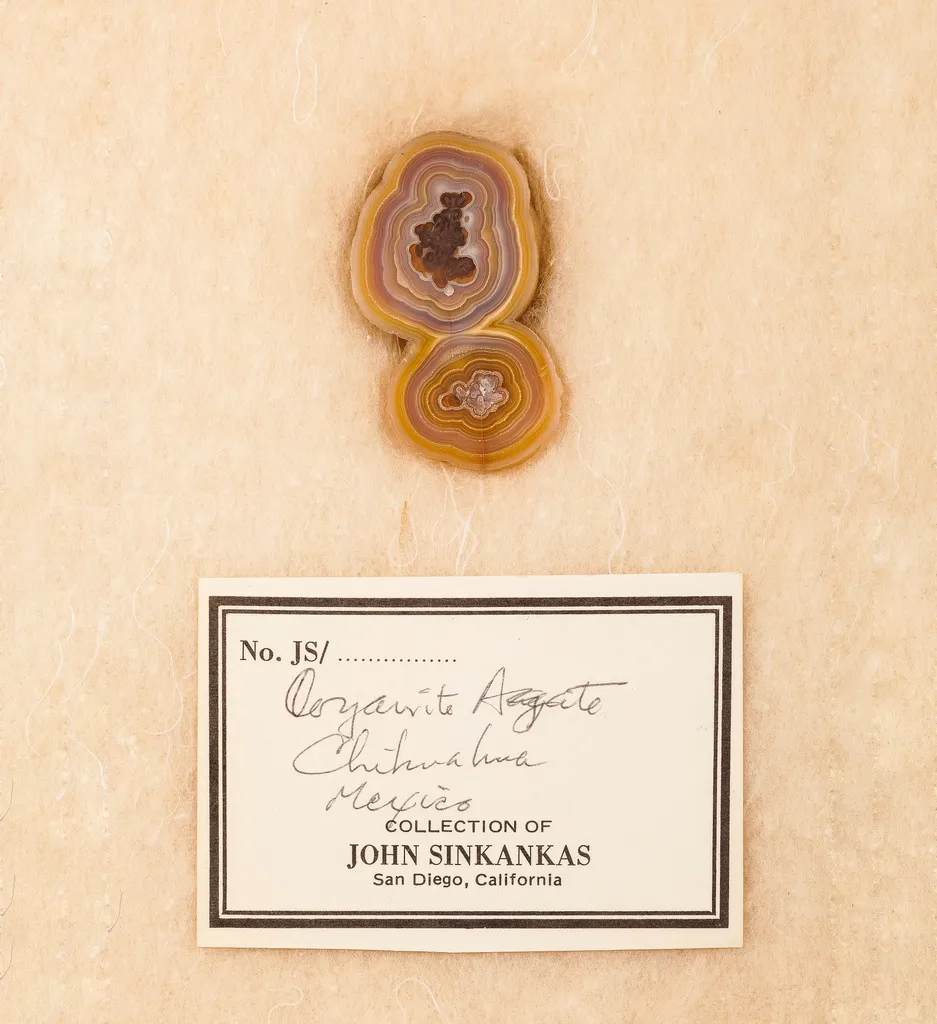 No. JS/ ................
Coyamite Agate
Chihuahua
Mexico
COLLECTION OF
JOHN SINKANKAS
San Diego, California